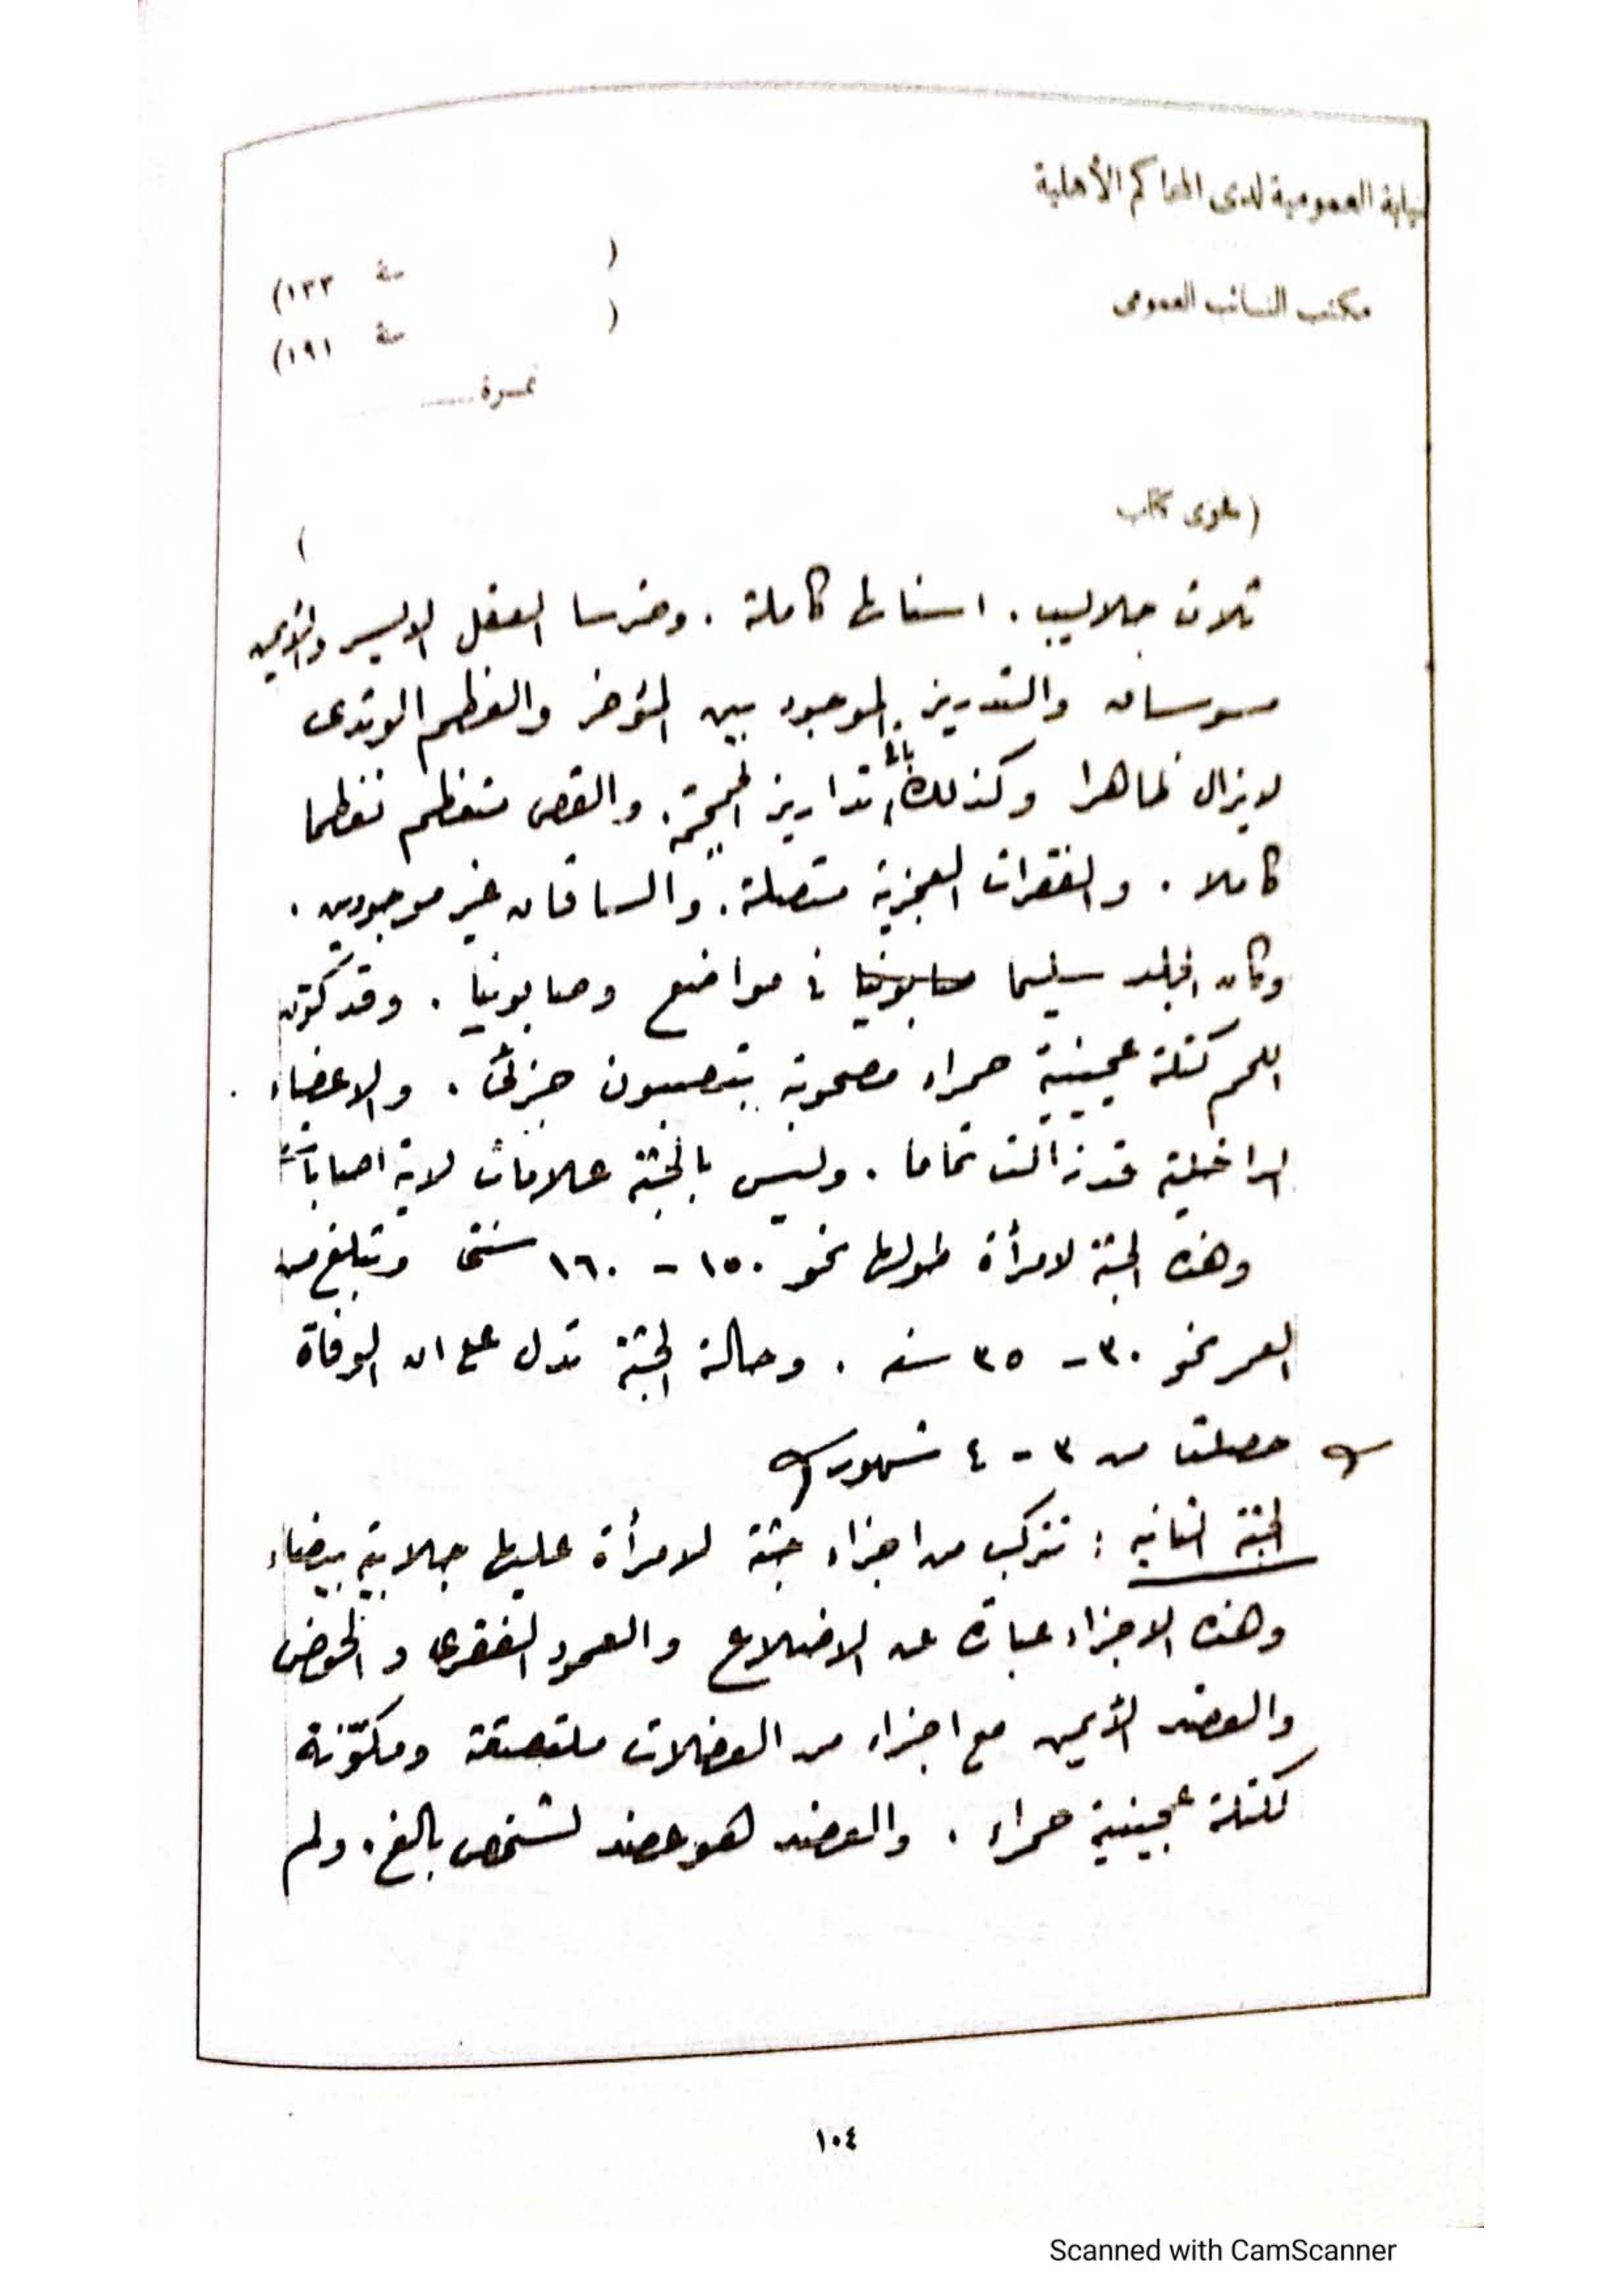 نيابة العمومية لدى المحاكم الأهلية
( سنة ١٣٣)
مكتب النائب العمومى
( سنة ١٩١)
نمرة
(طوى كتاب )
ثلاث جلاليب . اسنانها كاملة . وضرسا العقل الايسر والايمن
مسوسان والتدريز الموجود بين المؤخر والعظم الوتدى
لايزال ظاهرا وكذلك باقى تداريز الجمجمة . والقص متعظم تعظما
كاملا . والفقرات العجزية متصلة . والساقان غير موجودين .
وكان الجلد سليما صابونيا فى مواضع وصابونيا . وقد كون
اللحم كتلة عجينية حمراء مصحوبة بتصبون جزئى . والاعضاء
الداخلية قد زالت تماما . وليس بالجثة علامات لاية اصابات
وهذه الجثة لامرأة طولها نحو ١٥٠ - ١٦٠ سنتى وتبلغ من
العمر نحو ٣٠ - ٣٥ سنه . وحالة الجثة تدل على ان الوفاة
حصلت من ٣ - ٤ شهور
الجثة الثانيه : تتركب من اجزاء جثة لامرأة عليها جلابية بيضاء
وهذه الاجزاء عبارة عن الاضلاع والعمود الفقرى والحوض
والعضد الأيمن مع اجزاء من العضلات ملتصقة ومكونة
لكتلة عجينية حمراء . والعضد هو عضد لشخص بالغ . ولم
١٠٤
Scanned with CamScanner